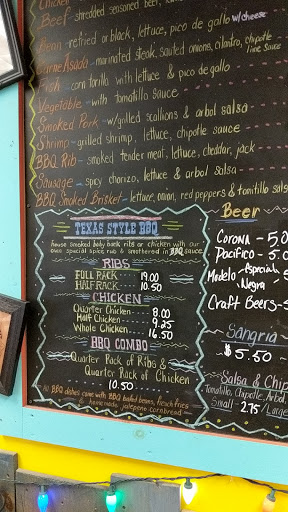 Chicken
Beef - shredded seasoned beef,
Bean - refried or black, lettuce, pico de gallo w/cheese
Carne Asada - marinated steak, sautéed onions, cilantro, chipotle lime sauce
Fish - corn tortilla with lettuce & pico de gallo
Vegetable - with tomatillo sauce
Smoked Pork - w/grilled scallions & arbol salsa
Shrimp - grilled shrimp, lettuce, chipotle sauce
BBQ Rib - smoked tender meat, lettuce, cheddar, jack
Sausage - spicy chorizo, lettuce & arbol salsa
BBQ Smoked Brisket - lettuce, onion, red peppers & tomatillo salsa
TEXAS STYLE BBQ
house smoked baby back ribs or chicken with our
own special spice rub & smothered in BBQ sauce
RIBS
FULL RACK 19.00
HALF RACK 10.50
CHICKEN
Quarter Chicken 8.00
Half Chicken 9.25
Whole Chicken 16.50
BBQ COMBO
Quarter Rack of Ribs &
Quarter Rack of Chicken
10.50
All BBQ dishes come with BBQ baked beans, french fries
& homemade jalapeno cornbread
Beer
Corona - 5.0
Pacifico - 5.0
Modelo - Especial
Negra
Craft Beers -
Sangria
$5.50
Salsa & Chip
Tomatillo, Chipotle, Arbol
Small - 2.75 / Large